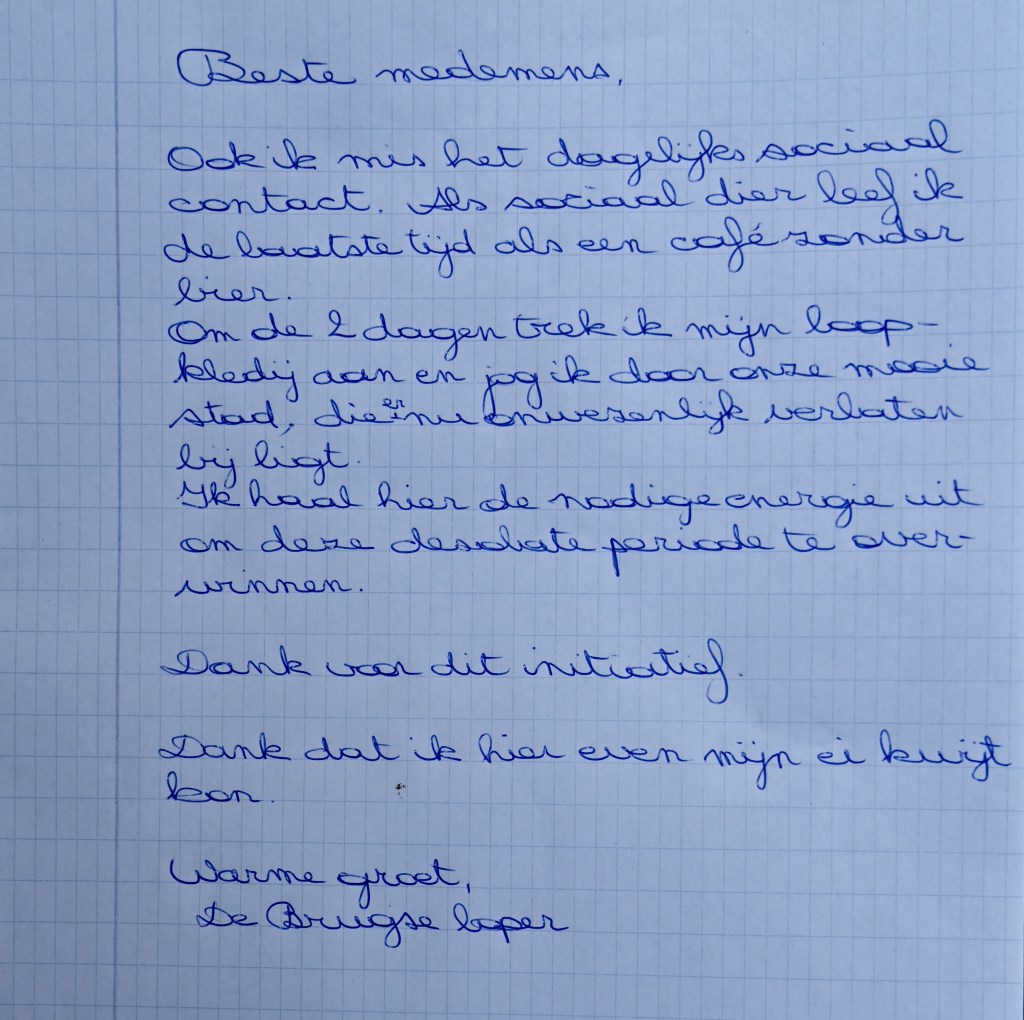 Beste medemens,
Ook ik mis het dagelijks sociaal
contact. Als sociaal dier leef ik
de laatste tijd als een café zonder
bier.
Om de 2 dagen trek ik mijn loop-
kledij aan en jog ik door onze mooie
stad, die er nu onwezenlijk verlaten
bij ligt.
Ik haal hier de nodige energie uit
om deze desolate periode te over-
winnen.
Dank voor dit initiatief.
Dank dat ik hier even mijn ei kwijt
kon.
Warme groet,
De Brugse loper